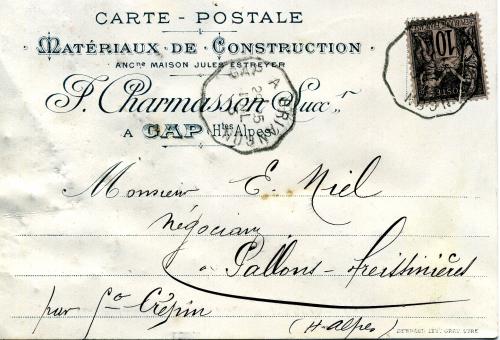 CARTE - POSTALE
MATÉRIAUX DE CONSTRUCTION
ANCNE MAISON JULES ESTREYER
F. Charmasson Succr
A GAP (Htes Alpes)
GAP A BRIANÇON
10
Monsieur E. Niel
négociant
à Pallons-Freissinières
par St Crépin
(H-Alpes)